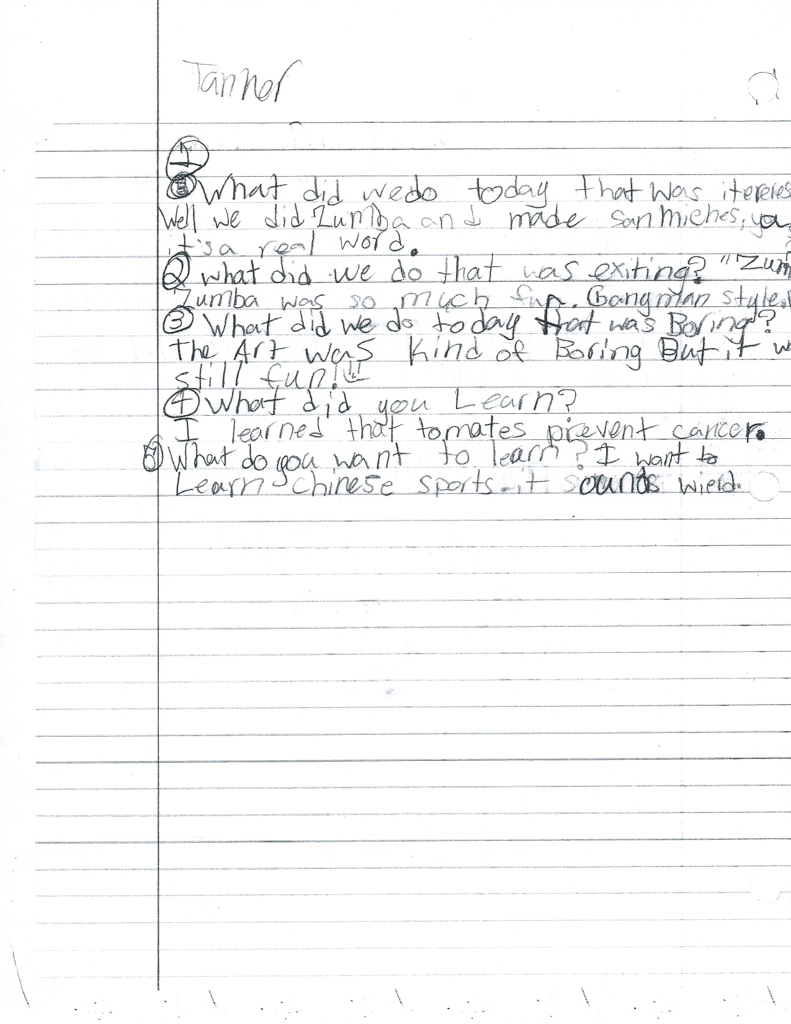 Tanner
1
What did we do today that was iteres
Well we did Zumba and made sanmiches, ya
it's a real word.
2 what did we do that was exiting? "Zum
Zumba was so much fun. Gangman style.
3 What did we do today that was Boring?
the Art was kind of Boring But it w
still fun!
4 What did you Learn?
I learned that tomates prevent cancer.
5 What do you want to learn? I want to
Learn chinese sports. it sounds wierd.